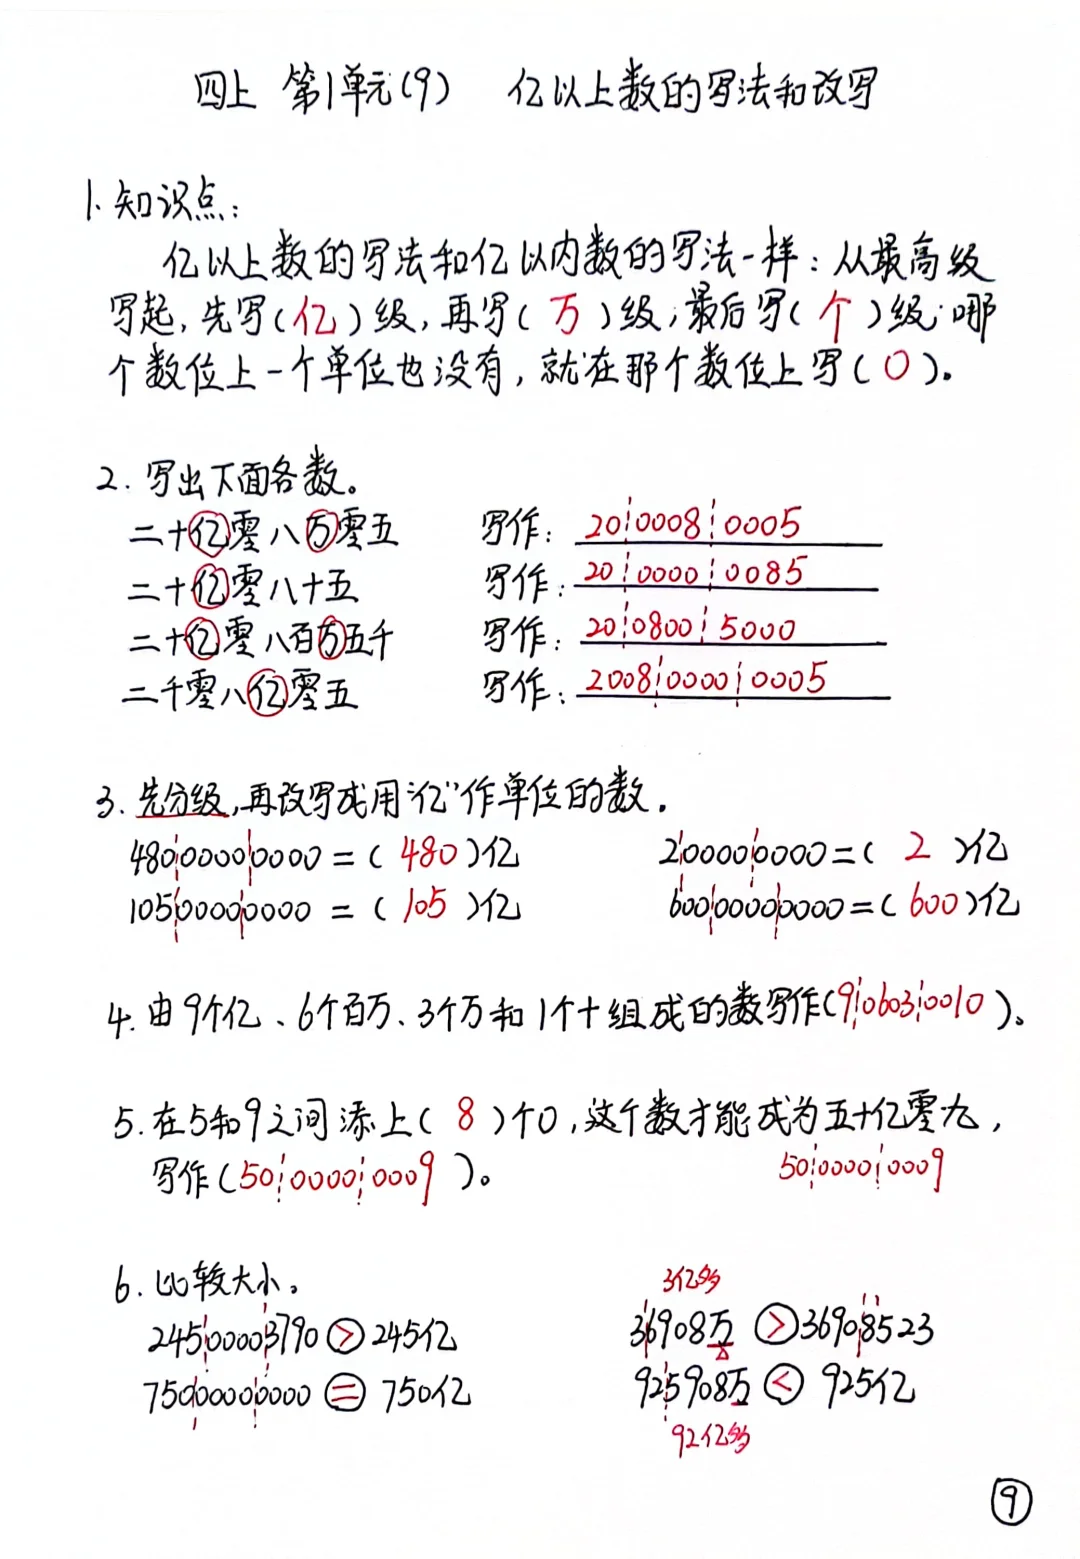 四上 第1单元(9) 亿以上数的写法和改写
1. 知识点:
亿以上数的写法和亿以内数的写法一样: 从最高级
写起, 先写(亿)级, 再写(万)级, 最后写(个)级; 哪
个数位上一个单位也没有, 就在那个数位上写(0)。
2. 写出下面各数。
二十亿零八万零五 写作: 20¦0008¦0005
二十亿零八十五 写作: 20¦0000¦0085
二十亿零八百万五千 写作: 20¦0800¦5000
二千零八亿零五 写作: 2008¦0000¦0005
3. 先分级, 再改写成用“亿”作单位的数.
480¦0000¦0000 = (480)亿 2¦0000¦0000 = (2)亿
105¦0000¦0000 = (105)亿 600¦0000¦0000 = (600)亿
4. 由9个亿、6个百万、3个万和1个十组成的数写作(9¦0603¦0010)。
5. 在5和9之间添上(8)个0, 这个数才能成为五十亿零九,
写作(50¦0000¦0009)。 50¦0000¦0009
6. 比较大小。
3亿多
245¦0000¦3790 > 245亿 3¦6908万 > 3690¦8523
750¦0000¦0000 = 750亿 92¦5908万 < 925亿
92亿多
9